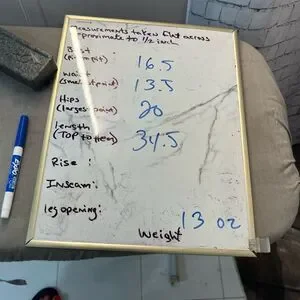 measurements taken flat across
approximate to 1/2 inch
Bust 16.5
(pit to pit)
waist 13.5
(smallest point)
Hips 20
(largest point)
length 34.5
(TOP to Hem)
Rise :
Inseam:
leg opening:
13 oz
Weight
EXPO